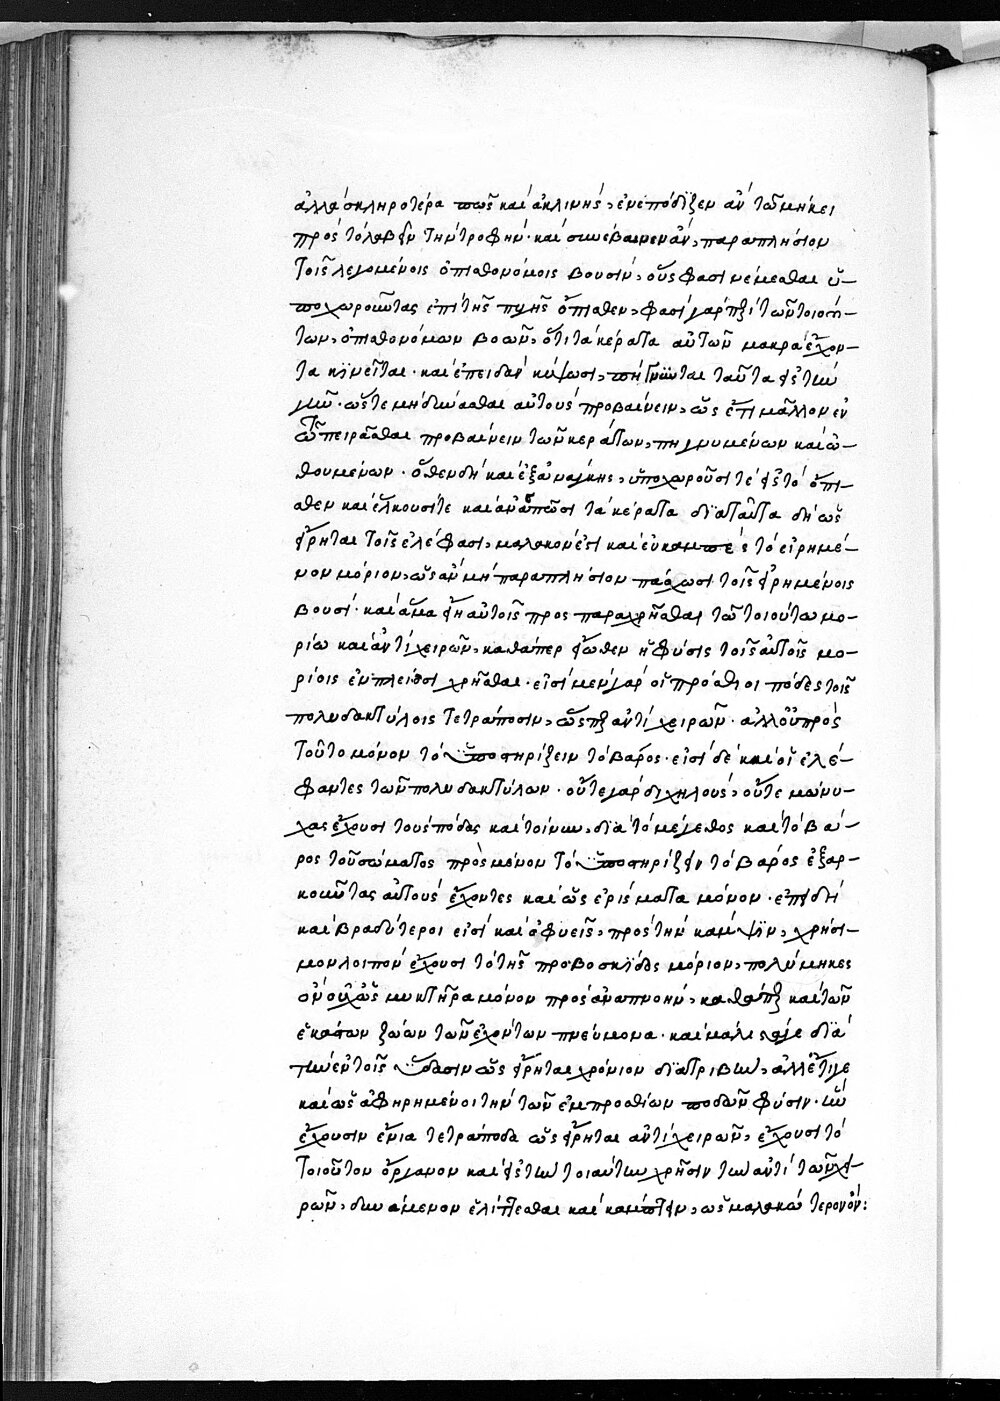 ἀλλὰ σκληροτέρα πως καὶ ἀκλινής, ἐνεπόδιζεν ἂν τῷ μήκει
πρὸς τὸ λαβεῖν τὴν τροφήν· καὶ συνέβαινεν ἂν, παραπλήσιον
τοῖς λεγομένοις ὀπισθονόμοις βουσίν, οὕς φασι νέμεσθαι ὑ-
ποχωροῦντας ἐπὶ τῆς πυγῆς ὄπισθεν, φασὶ γὰρ περὶ τῶν τοιού-
των, ὀπισθονόμων βοῶν, ὅτι τὰ κέρατα αὐτῶν μακρὰ ἔχον-
τα κινεῖται· καὶ ἐπειδὰν κύψωσι, πήγνυνται ταῦτα εἰς τὴν
γῆν· ὥστε μὴ δύνασθαι αὐτοὺς προβαίνειν, ὡς ἔτι μᾶλλον ἐν
τῷ πειρᾶσθαι προβαίνειν τῶν κεράτων, πηγνυμένων καὶ ὠ-
θουμένων· ὅθεν δὴ καὶ ἐξ ἀνάγκης, ὑποχωροῦσί τε εἰς τὸ ὄπι-
σθεν καὶ ἕλκουσί τε καὶ ἀνασπῶσι τὰ κέρατα διὰ ταῦτα δὴ ὡς
εἴρηται τοῖς ἐλέφασι, μαλακόν ἐστι καὶ εὐκαμπὲς τὸ εἰρημέ-
νον μόριον, ὡς ἂν μὴ παραπλήσιον πάσχωσι τοῖς εἰρημένοις
βουσί· καὶ ἅμα ᾖ αὐτοῖς πρὸς παραχρῆσθαι τῷ τοιούτῳ μο-
ρίῳ καὶ ἀντὶ χειρῶν, καθάπερ εἴωθεν ἡ φύσις τοῖς αὐτοῖς μο-
ρίοις ἐν πλείοσι χρῆσθαι· εἰσὶ μὲν γὰρ οἱ πρόσθιοι πόδες τοῖς
πολυδακτύλοις τετράποσιν, ὥσπερ ἀντὶ χειρῶν· ἀλλ' οὐ πρὸς
τοῦτο μόνον τὸ ὑποστηρίζειν τὸ βάρος· εἰσὶ δὲ καὶ οἱ ἐλέ-
φαντες τῶν πολυδακτύλων· οὔτε γὰρ διχηλούς, οὔτε μώνυ-
χας ἔχουσι τοὺς πόδας καὶ τοίνυν, διὰ τὸ μέγεθος καὶ τὸ βά-
ρος τοῦ σώματος πρὸς μόνον τὸ ὑποστηρίζειν τὸ βάρος ἐξαρ-
κοῦντας αὐτοὺς ἔχοντες καὶ ὡς ἐρίσματα μόνον· ἐπειδὴ
καὶ βραδύτεροί εἰσι καὶ ἀφυεῖς, πρὸς τὴν κάμψιν, χρήσι-
μον λοιπὸν ἔχουσι τὸ τῆς προβοσκίδος μόριον, πολύμηκες
ὂν οὐχ ὡς μυκτῆρα μόνον πρὸς ἀναπνοήν, καθάπερ καὶ τῶν
ἑκάστων ζώων τῶν ἐχόντων πνεύμονα· καὶ μάλιστά γε διὰ
τὴν ἐν τοῖς ὕδασιν ὡς εἴρηται χρόνιον διατριβήν, ἀλλ' ἔτι γε
καὶ ὡς ἀφῃρημένοι τὴν τῶν ἐμπροσθίων ποδῶν φύσιν· ἣν
ἔχουσιν ἔνια τετράποδα ὡς εἴρηται ἀντὶ χειρῶν, ἔχουσι τὸ
τοιοῦτον ὄργανον καὶ εἰς τὴν τοιαύτην χρῆσιν τὴν ἀντὶ τῶν χει-
ρῶν, δυνάμενον ἑλίττεσθαι καὶ κάμπτειν, ὡς μαλακώτερον ὄν: